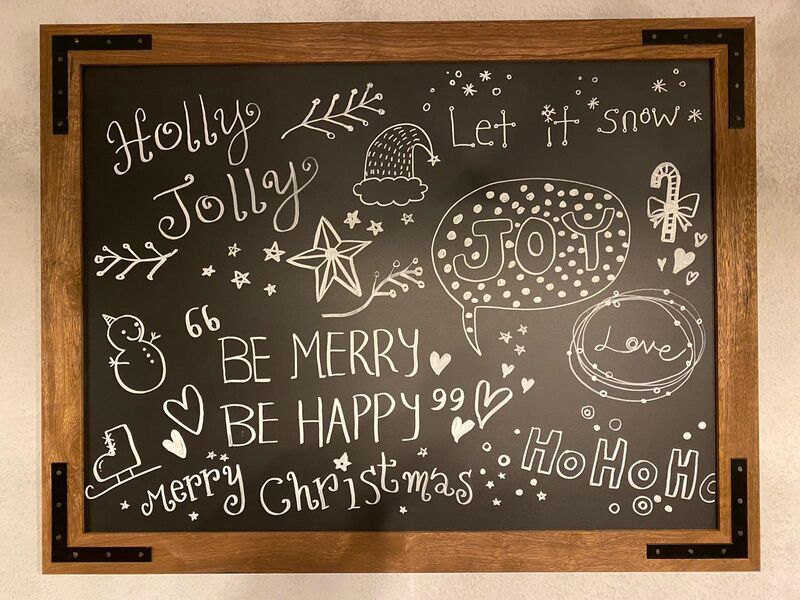 Holly
Jolly
Let it snow
JOY
Love
“BE MERRY
BE HAPPY”
HoHoHo
Merry Christmas